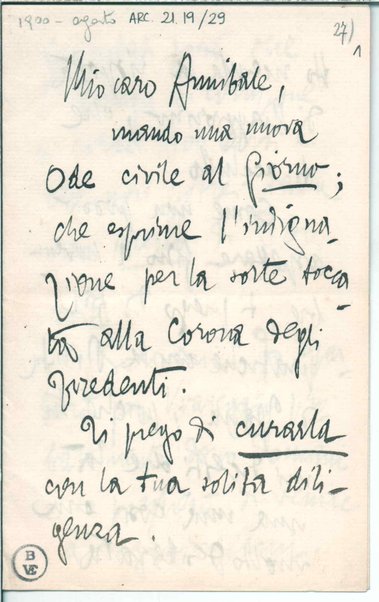 1900 - agosto ARC. 21. 19/29
27) 1
Mio caro Annibale,
mando una nuova
Ode civile al Giorno;
che esprime l'indigna
zione per la sorte tocca-
ta alla Corona degli
Irredenti.
Ti prego di curarla
con la tua solita dili-
genza.
B
VE